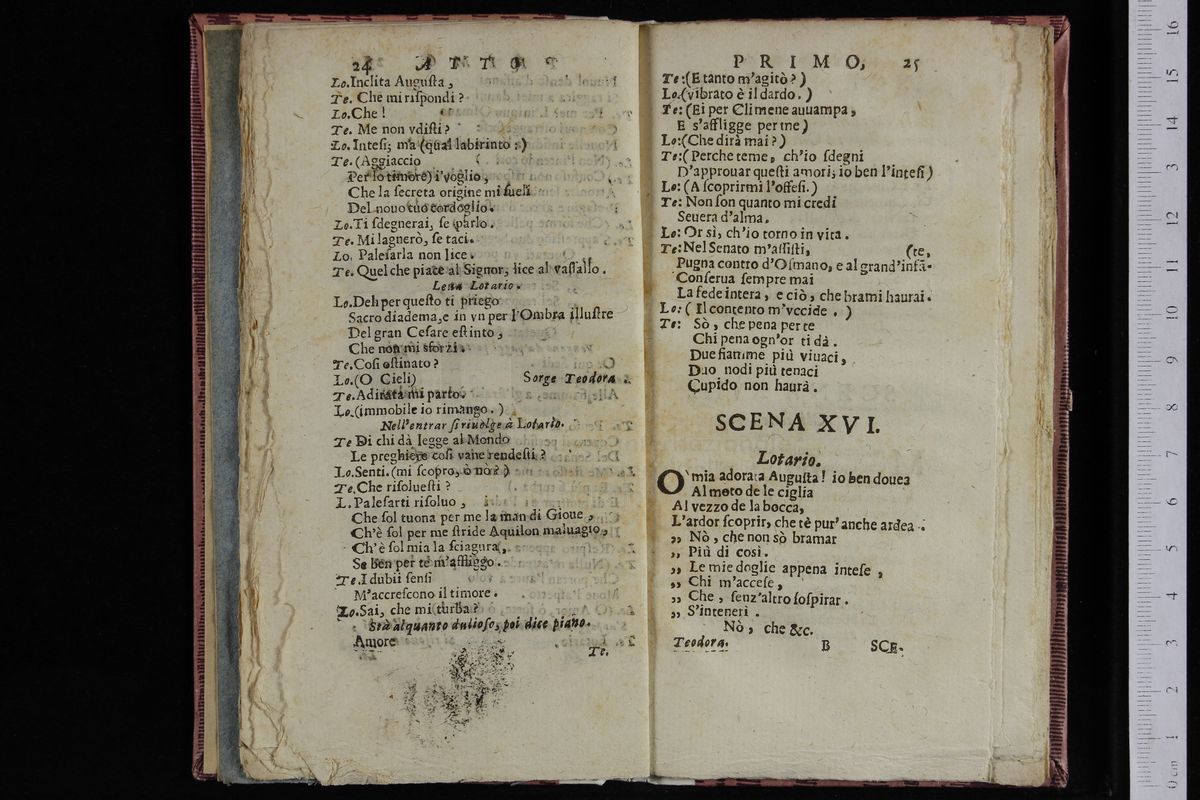 24 ATTO
Lo.Inclita Auguſta,
Te. Che mi riſpondi?
Lo.Che!
Te. Me non vdiſti?
Lo. Inteſi; ma (qual labirinto:)
Te. (Aggiaccio
Per lo timore) i'voglio,
Che la ſecreta origine mi ſueli
Del nouo tuo cordoglio.
Lo.Ti ſdegnerai, ſe parlo.
Te. Mi lagnerò, ſe taci.
Lo. Paleſarla non lice.
Te. Quel che piace al Signor, lice al vaſſallo.
Leua Lotario.
Lo.Deh per queſto ti priego
Sacro diadema, e in vn per l'Ombra illuſtre
Del gran Ceſare eſtinto,
Che non mi sforzi.
Te.Coſi oſtinato?
Lo.(O Cieli) Sorge Teodora.
Te.Adirata mi parto.
Lo.(immobile io rimango.)
Nell'entrar ſi riuolge à Lotario.
Te Di chi dà legge al Mondo
Le preghiere coſi vane rendeſti?
Lo.Senti.(mi ſcopro, ò no?)
Te.Che riſolueſti?
L. Paleſarti riſoluo,
Che ſol tuona per me la man di Gioue,
Ch'è ſol per me ſtride Aquilon maluagio,
Ch'è ſol mia la ſciagura,
Se ben per te m'affliggo.
Te.I dubii ſenſi
M'accreſcono il timore.
Lo.Sai, che mi turba?
Stà alquanto dubioſo, poi dice piano.
Amore
Te.
PRIMO, 25
Te:(E tanto m'agitò?)
Lo.(vibrato è il dardo.)
Te: (Ei per Climene auuampa,
E s'affligge per me)
Lo:(Che dirà mai?)
Te:(Perche teme, ch'io ſdegni
D'approuar queſti amori; io ben l'inteſi)
Lo: (A ſcoprirmi l'offeſi.)
Te: Non ſon quanto mi credi
Seuera d'alma.
Lo: Or sì, ch'io torno in vita.
Te:Nel Senato m'aſſiſti, (te,
Pugna contro d'Oſmano, e al grand'infã-
Conſerua ſempre mai
La fede intera, e ciò, che brami haurai.
Lo: (Il contento m'vccide.)
Te: Sò, che pena per te
Chi pena ogn'or ti dà.
Due fiamme più viuaci,
Duo nodi più tenaci
Cupido non haurà.
SCENA XVI.
Lotario.
O mia adorata Auguſta! io ben douea
Al moto de le ciglia
Al vezzo de la bocca,
L'ardor ſcoprir, che tè pur'anche ardea.
„ Nò, che non sò bramar
„ Più di così.
„ Le mie doglie appena inteſe,
„ Chi m'acceſe,
„ Che, ſenz'altro ſoſpirar.
„ S'inteneri.
Nò, che &c.
Teodora. B SCE-